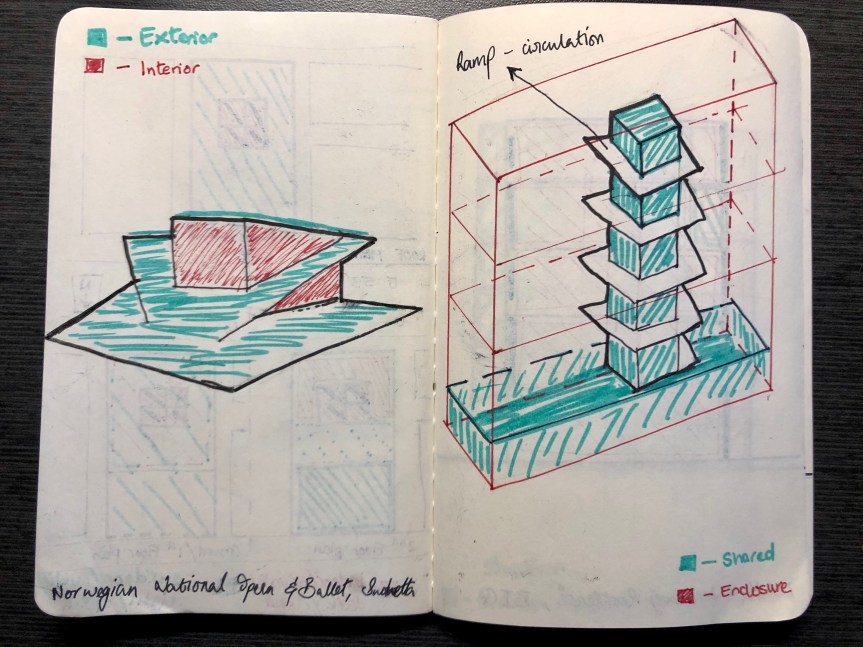 - Exterior
- Interior
Norwegian National Opera & Ballet, Snohetta
Ramp - circulation
- Shared
- Enclosure